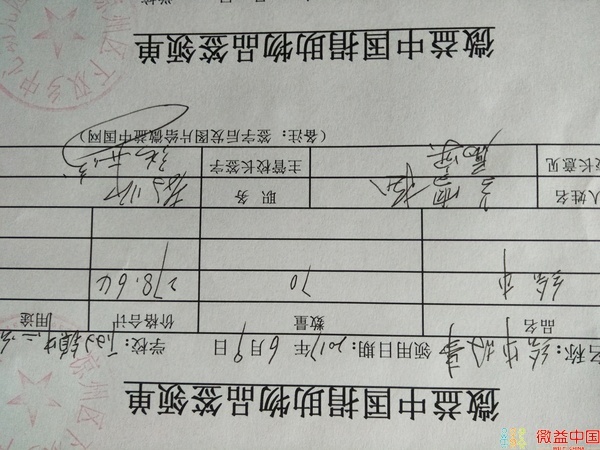 微益中国捐助物品签领单
名称：绘本故事 领用日期：2017年6月9日 学校：
品名 数量 价格合计 用途
绘本 70 278.6
人姓名 职务 教师
校长意见 属实 主管校长签字
（备注：签字后发图片给微益中国网）
微益中国捐助物品签领单
凉州区下双乡中心
微益中国